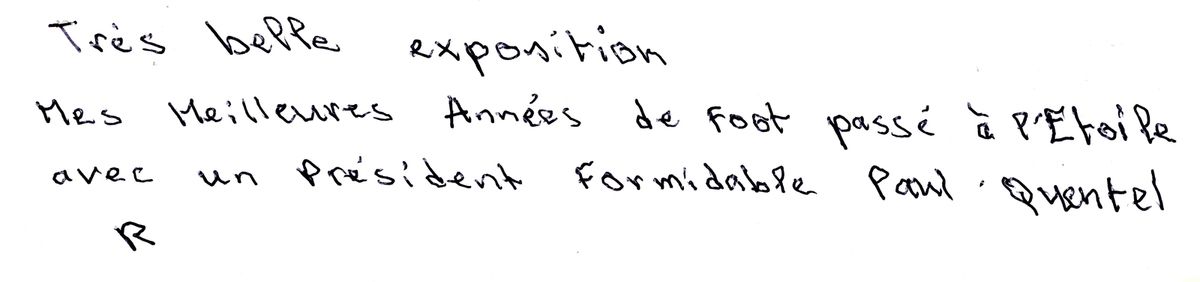 Très belle exposition
Mes Meilleures Années de Foot passé à l'Etoile
avec un Président Formidable Paul Quentel
R